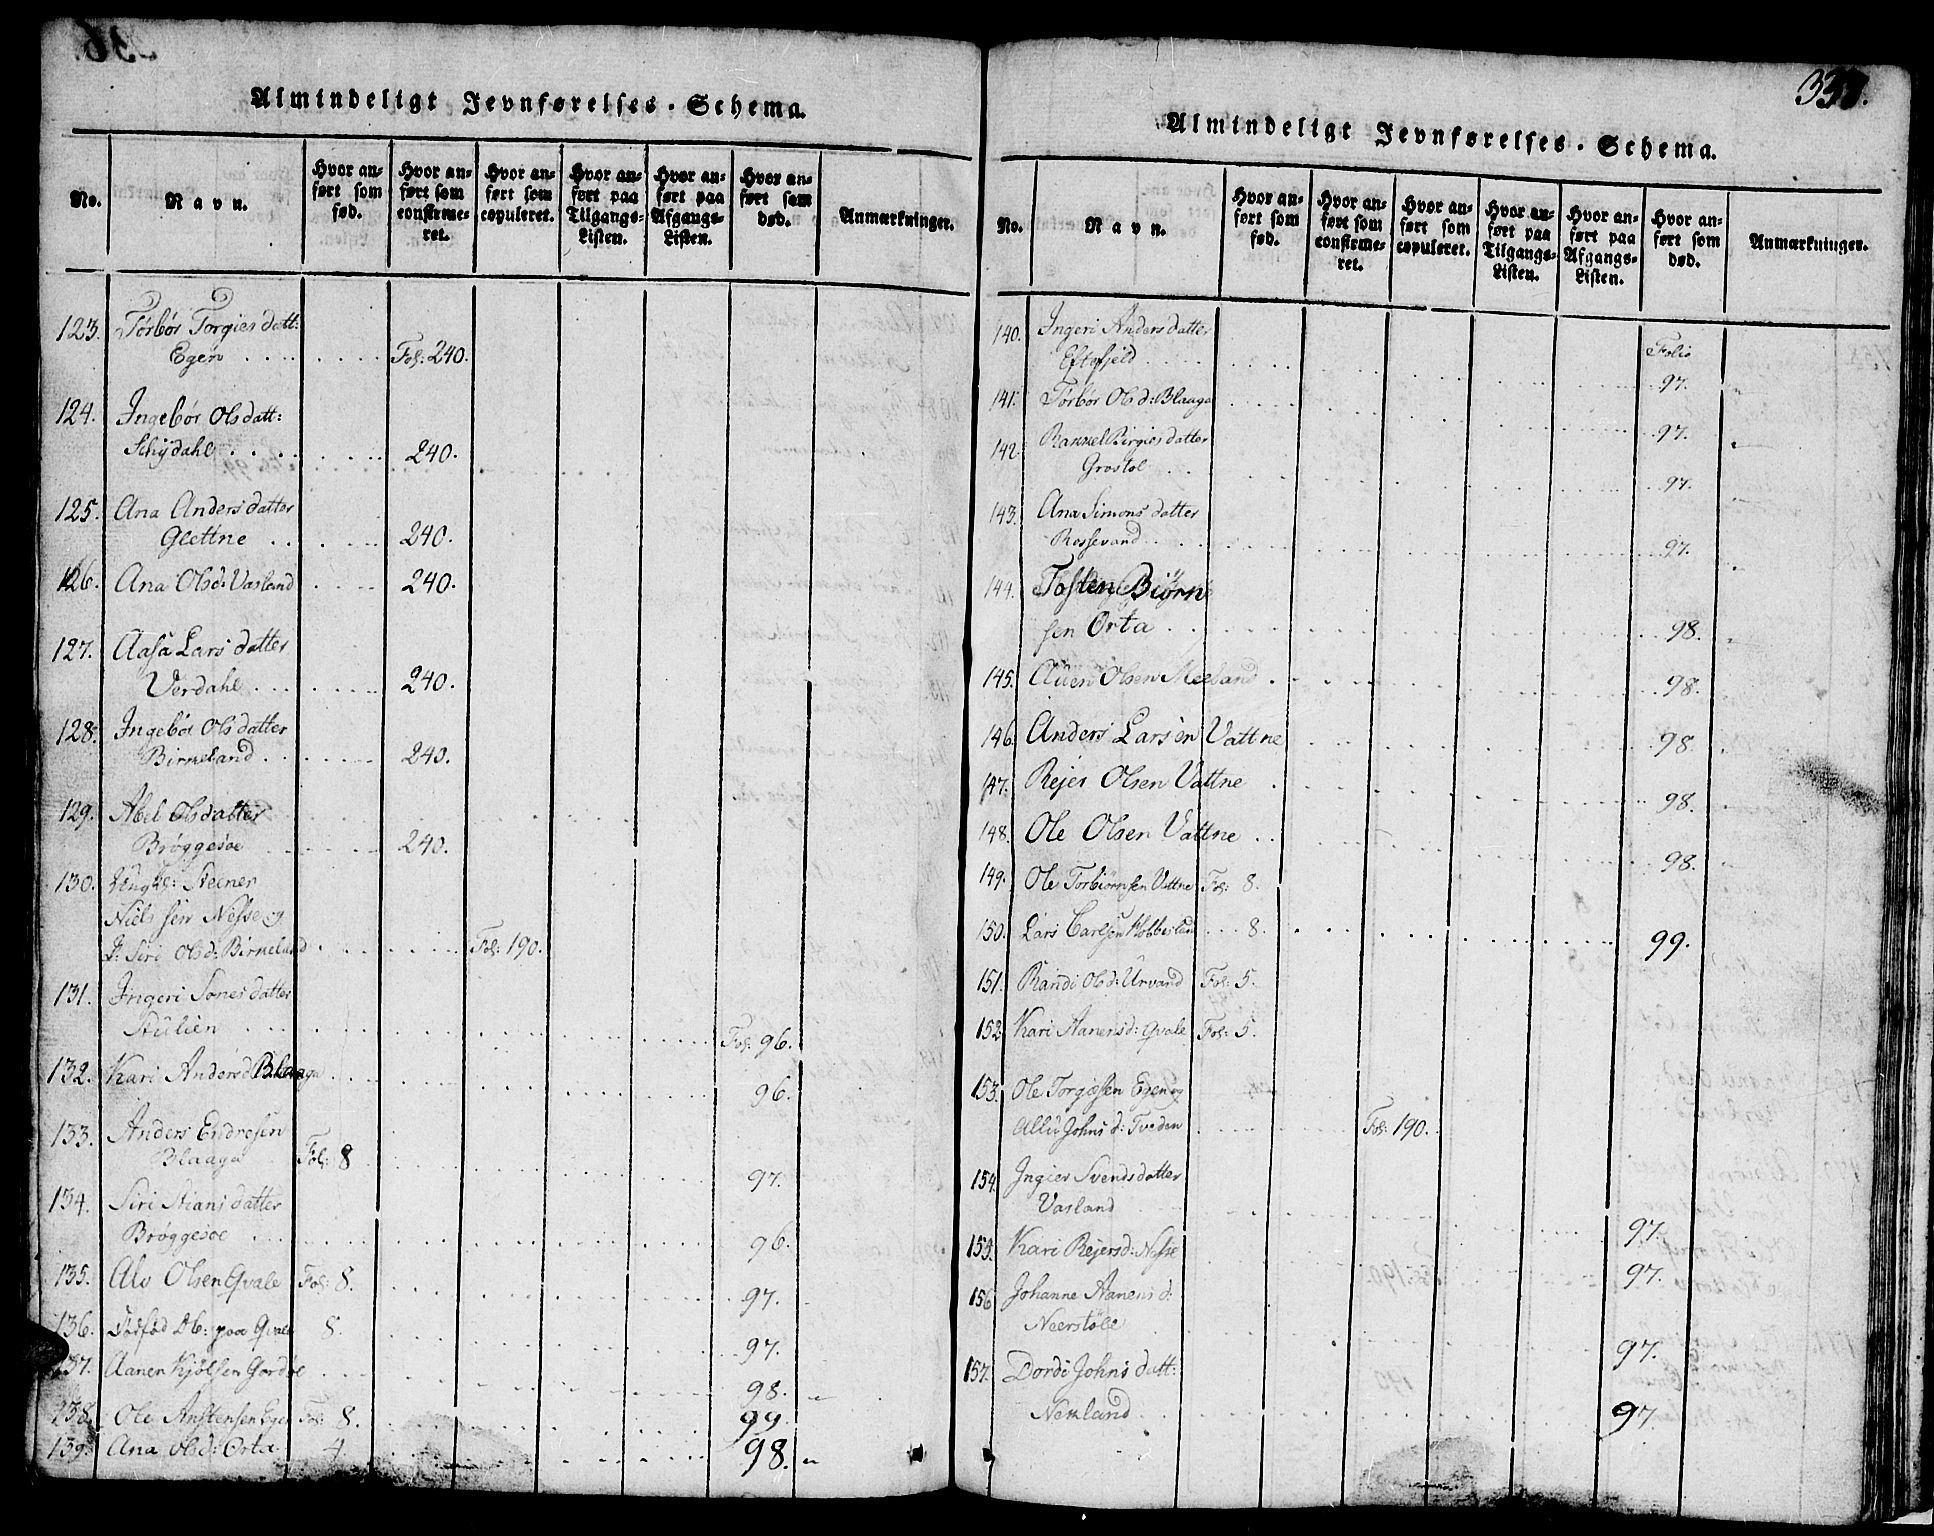 Almindeligt Jevnførelses-Schema.
No. Navn. Hvor anført som fød. Hvor anført som confirmeret. Hvor anført som copuleret. Hvor anført paa Tilgangs-Listen. Hvor anført paa Afgangs-Listen. Hvor anført som død. Anmærkninger.
123. Torbør Torgiesdatt:
Egen Fol: 240.
124. Ingebør Olsdatt:
Schÿdahl 240.
125. Ana Andersdatter
Glettne 240.
126. Ana Olsd: Vasland 240.
127. Aasa Larsdatter
Verdahl 240.
128. Ingebør Olsdatter
Birkeland 240.
129. Abel Olsdatter
Brøggesøe 240.
130. Ungkl: Steener
Nielsen Nesse og
P: Siri Olsd: Birkeland Fol: 190.
131. Ingeri Sonesdatter
Stulien Fol: 96.
132. Kari Andersd Blaaga 96.
133. Anders Endresen
Blaaga Fol: 8 97.
134. Siri Stiansdatter
Brøggesøe 96.
135. Alv Olsen Qvale Fol: 8. 97.
136. Dødfød Db: paa Qvale 8. 97.
137. Aanen Kjølsen 98.
138. Ole Anstensen Egen Fol: 8. 99.
139. Ana Olsd: Orta 4. 98.
337.
Almindeligt Jevnførelses-Schema.
No. Navn. Hvor anført som fød. Hvor anført som confirmeret. Hvor anført som copuleret. Hvor anført paa Tilgangs-Listen. Hvor anført paa Afgangs-Listen. Hvor anført som død. Anmærkninger.
140. Ingeri Andersdatter
Eftefjeld Folio 97.
141. Torbør Olsd: Blaaga 97.
142. Rannel Birgiesdatter
Grostøl 97.
143. Ana Simonsdatter
Rossevand 97.
144. Tosten Biørn
sen Orta 98.
145. Auen Olsen Meeland 98.
146. Anders Larsen Vattne 98.
147. Rejer Olsen Vattne 98.
148. Ole Olsen Vattne 98.
149. Ole Torbiørnsen Vattne Fol: 8.
150. Lars Carlsen Kobbeslan 8. 99.
151. Randi Olsd: Urvand Fol: 5.
152. Kari Aanensd: Qvale Fol: 5.
153. Ole Torgiesen Egen og
Allis Johnsd: Tveden Fol: 190.
154. Ingier Svendsdatter
Vasland 97.
155. Kari Rejersd: Nesse 97.
156. Johanne Aanensd:
Neerstøle 97.
157. Dordi Johnsdatt:
Nekland 97.